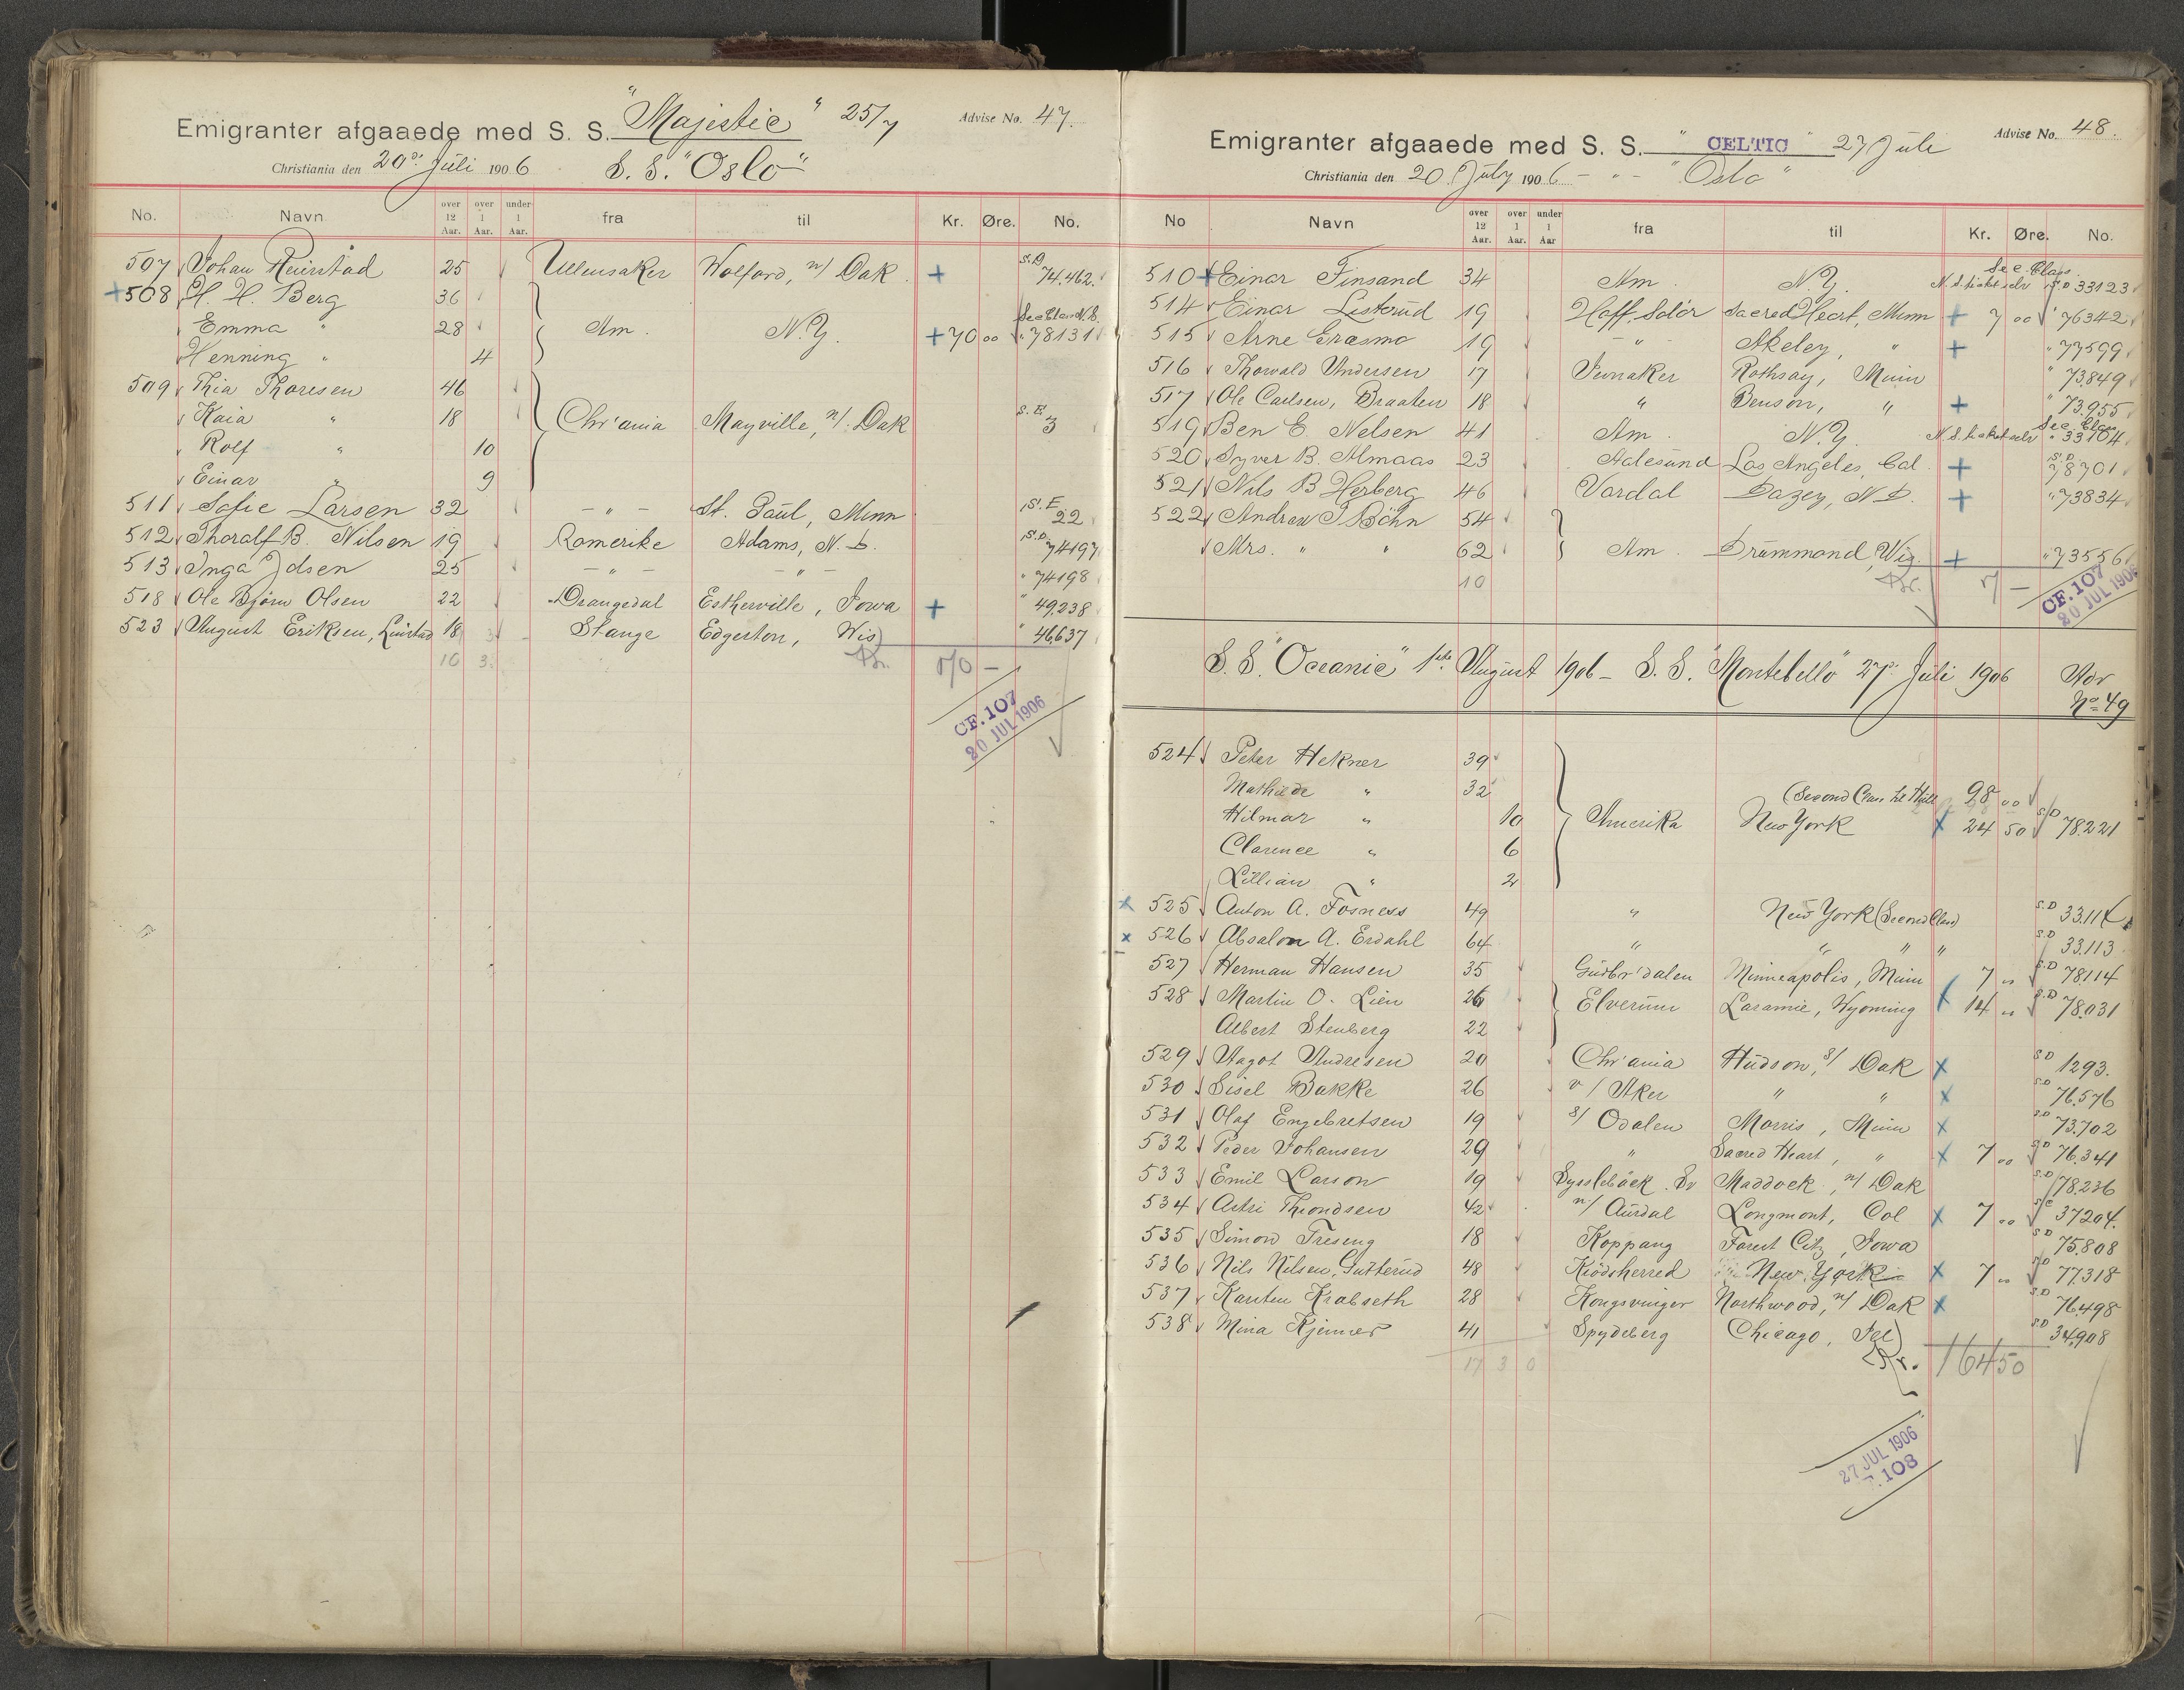 Emigranter afgaaede med S. S. "Majestic" 25/7 Advise No. 47.
Christiania den 20de Juli 1906 S. S. "Oslo"
No. Navn over 12 Aar. over 1 Aar. under 1 Aar. fra til Kr. Øre. No.
507 Johan Reierstad 25 Ullensaker Wolford, n/ Dak. + S.D. 74.462.
+508 H. H. Berg 36
Emma " 28 Am. N.Y. +70 00 " 78131
Henning " 4
509 Thia Thoresen 46
Kaia " 18 Chr'ania Mayville, n/. Dak S.E. 3
Rolf " 10
Einar " 9
511 Sofie Larsen 32 - " - St. Paul, Minn S.E 22
512 Thoralf B. Nilsen 19 Romerike Adams, N. D. S.D. 74197
513 Inga Idsen 25 - " - - " - " 74198
518 Ole Bjørn Olsen 22 Drangedal Estherville, Iowa + " 49.238
523 August Eriksen, 18 Stange Edgerton, Wis " 46.637
10 3. Kr. 70 -
CF. 107
20 JUL 1906
Emigranter afgaaede med S. S. "CELTIC" 27 Juli Advise No. 48.
Christiania den 20 July 1906 - " - "Oslo"
No Navn over 12 Aar. over 1 Aar. under 1 Aar fra til Kr. Øre. No.
510 + Einar Finsand 34 Am. N.Y. Sec. Class. S.D 33123
514 Einar Listerud 19 Hoff, Solør Sacred Heart, Minn + 7 00 " 76342
515 Arne Græsmo 19 - " - Akeley, " + " 77599
516 Thorvald Andersen 17 Jevnaker Rothsay, Minn " 73.849
517 Ole Carlsen, Braaten 18 " Benson, " + " 73.955
519 Ben E. Nelsen 41 Am. N.Y. Sec. Class " 33104
520 Syver B. Almaas 23 Aalesund Los Angeles, Cal. + S.D. 78701
521 Nils B Herberg 46 Vardal Dazey, N D. + " 73834
522 Andrew J Böhn 54
Mrs. " " 62 Am. Drummond, Wis. + " 73556
10 Kr. 7 -
CF. 107
20 JUL 1906
S. S. "Oceanic" 1ste August 1906 - S. S. "Montebello" 27de Juli 1906 Adv
No 49
524 Peter Hekner 39
Mathilde " 32 (Second Class til Hull 98 00
Hilmar " 10 Amerika New York x 24 50 S/D 78.221
Clarence " 6
Lillian " 2
x 525 Anton A. Fosness 49 " New York (Second Class) S.D 33.114
x 526 Absalon A. Erdahl 64 " " " " S.D 33.113
527 Herman Hansen 35 Gudbr'dalen Minneapolis, Minn 7 00 S.D 78.114
528 Martin O. Lien 26 Elverum Laramie, Wyoming x 14 00 S.D 78.031
Albert Stenberg 22
529 Aagot Andresen 20 Chr'ania Hudson, s/ Dak x S.D 1293.
530 Sisel Bakke 26 v/ Aker " " x S.D 76.576
531 Olaf Engebretsen 19 s/ Odalen Morris, Minn x S.D 73.702
532 Peder Johansen 29 " Sacred Heart, " x 7 00 S.D 76.341
533 Emil Larson 19 Sysslebäck. Sv Maddock, n/ Dak S.D 78.236
534 Astri Throndsen 42 n/ Aurdal Longmont, Col x 7 00 S/E 37204.
535 Simon Treseng 18 Koppang Forest City, Iowa S.D 75.808
536 Nils Nilsen, Gutterud 48 Krödsherred New York x 7 00 S.D 77.318
537 Karsten Krabseth 28 Kongsvinger Northwood, n/ Dak x S.D 76.498
538 Mina Kjenner 41 Spydeberg Chicago, Ill S.D 34.908
17 3 0 Kr. 164 50
27 JUL 1906
F. 108